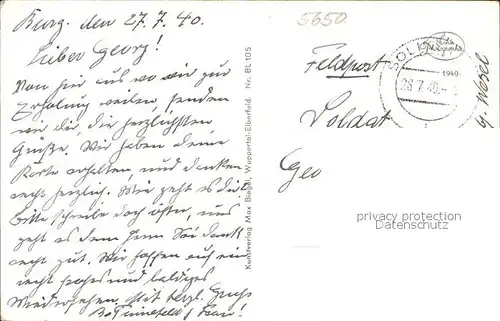 Burg, den 27.7.40.
Lieber Georg!
Von hier aus wo wir zur
Erholung weilen, senden
wir dir, die herzlichsten
Grüße. Wir haben deine
Karte erhalten, und danken
recht herzlich. Wie geht es dir
bitte schreibe doch öfter, uns
geht es dem Herrn sei dank
recht gut. Wir hoffen auf ein
recht frohes und baldiges
Wiedersehen. Mit herzl. Gruß
Frau!
Kunstverlag Max Biegel, Wuppertal-Elberfeld. Nr. Bl. 105
5650
SOL
1940
26.7.40.
Feldpost
Soldat
Geo
Wesel
privacy protection
Datenschutz